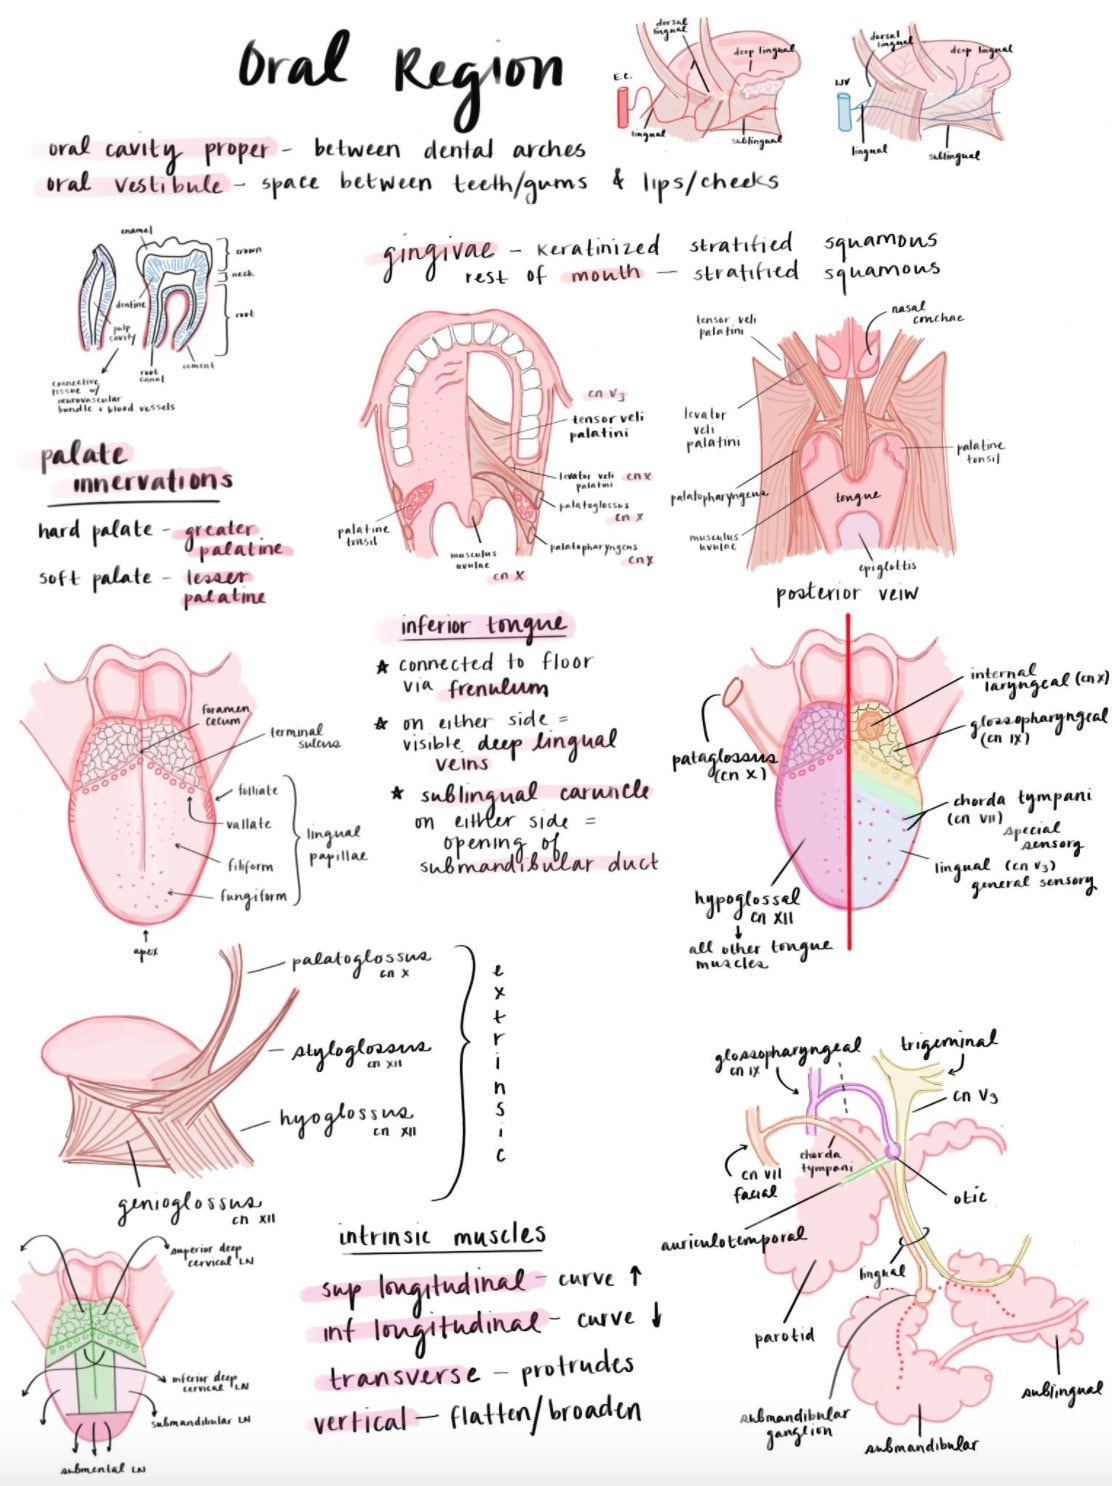 Oral Region
dorsal
lingual
deep lingual
E.C.
lingual
sublingual
dorsal
lingual
deep lingual
IJV
lingual
sublingual
oral cavity proper - between dental arches
oral vestibule - space between teeth/gums & lips/cheeks
enamel
crown
neck
dentine
root
pulp
cavity
root
canal
cement
connective
tissue w/
neurovascular
bundle + blood vessels
gingivae - keratinized stratified squamous
rest of mouth - stratified squamous
cn V3
tensor veli
palatini
levator veli
palatini
cn X
palatoglossus
cn X
palatopharyngeus
cn X
palatine
tonsil
musculus
uvulae
cn X
tensor veli
palatini
nasal
conchae
levator
veli
palatini
palatine
tonsil
palatopharyngeus
tongue
musculus
uvulae
epiglottis
posterior veiw
palate
innervations
hard palate - greater
palatine
soft palate - lesser
palatine
foramen
cecum
terminal
sulcus
folliate
vallate
filiform
fungiform
lingual
papillae
apex
inferior tongue
★ connected to floor
via frenulum
★ on either side =
visible deep lingual
veins
★ sublingual caruncle
on either side =
opening of
submandibular duct
internal
laryngeal (cn X)
glossopharyngeal
(cn IX)
pataglossus
(cn X)
chorda tympani
(cn VII)
special
sensory
lingual (cn V3)
general sensory
hypoglossal
cn XII
↓
all other tongue
muscles
palatoglossus
cn X
styloglossus
cn XII
hyoglossus
cn XII
genioglossus
cn XII
extrinsic
superior deep
cervical LN
inferior deep
cervical LN
submandibular LN
submental LN
intrinsic muscles
sup longitudinal - curve ↑
inf longitudinal - curve ↓
transverse - protrudes
vertical - flatten/broaden
glossopharyngeal
cn IX
trigeminal
cn V3
chorda
tympani
cn VII
facial
otic
auriculotemporal
lingual
parotid
sublingual
submandibular
ganglion
submandibular